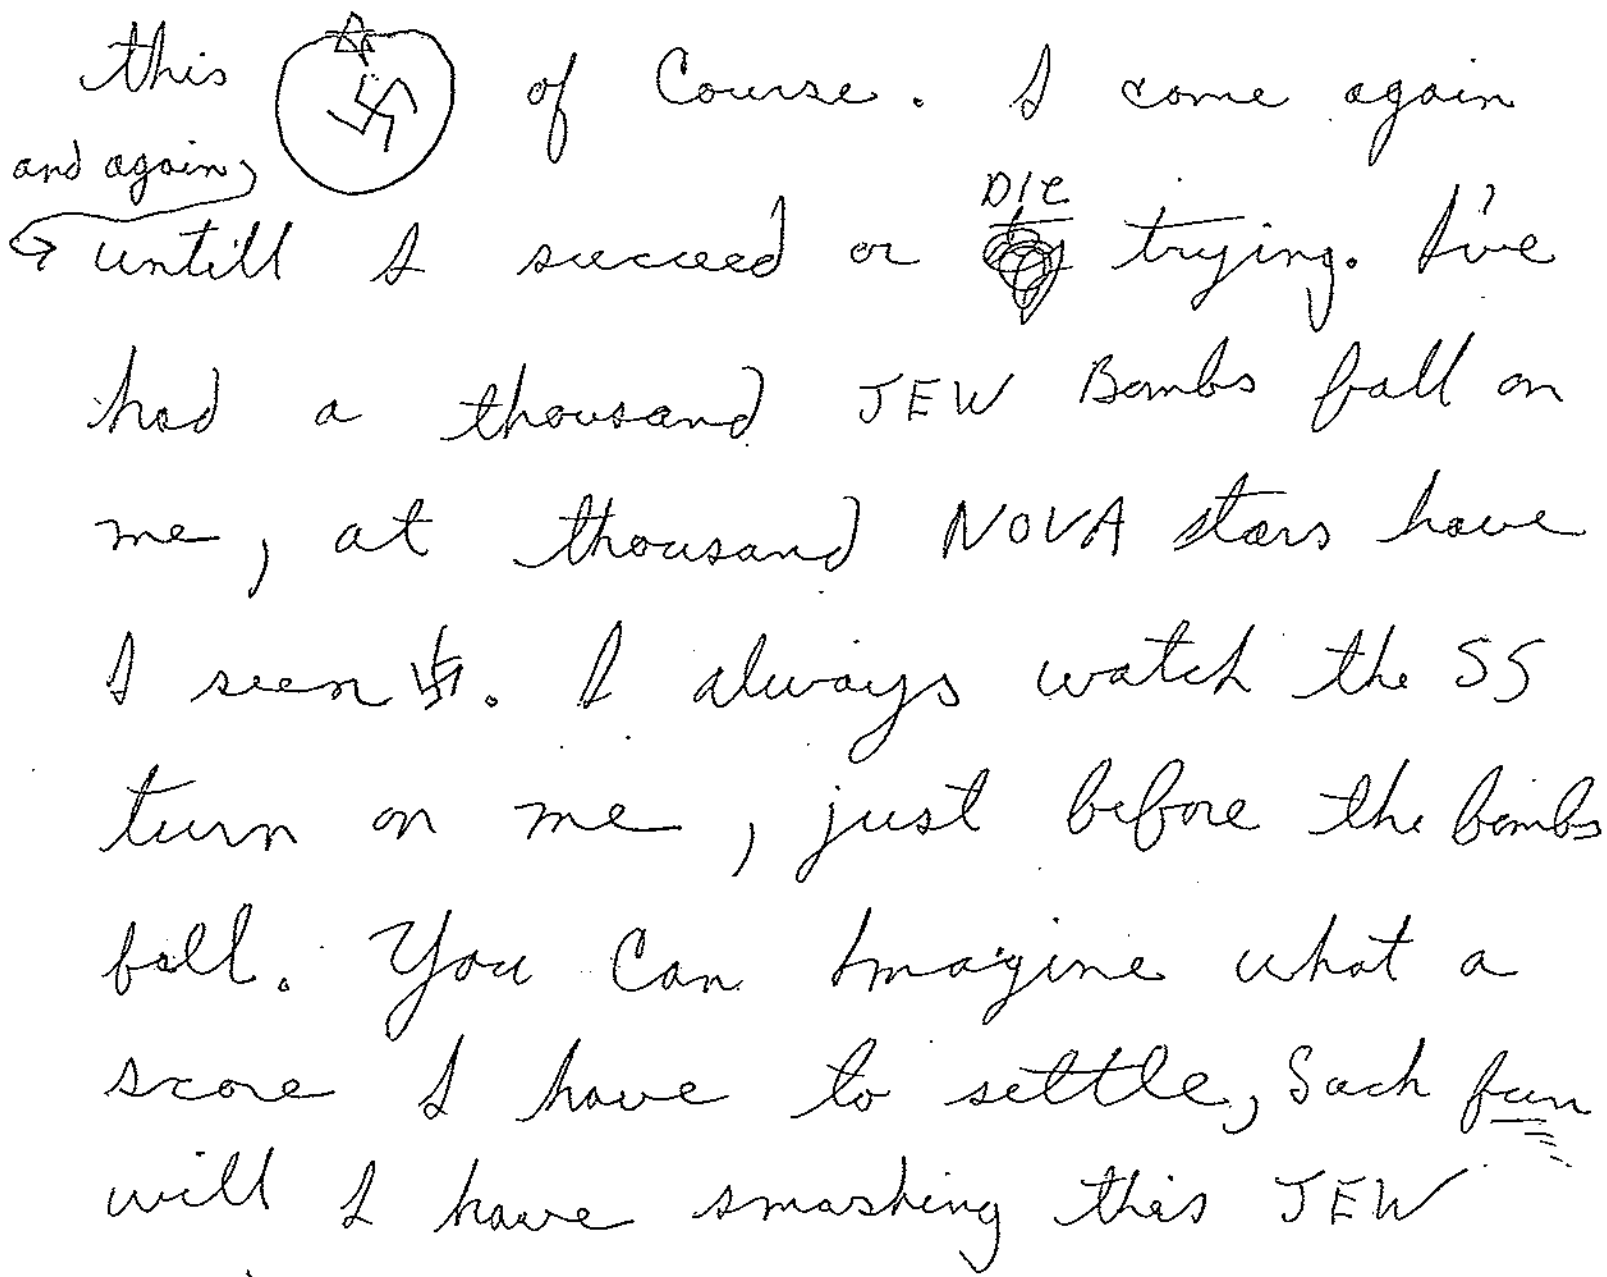 this of Course. I come again
and again,
untill I succeed or DIE trying. I've
had a thousand JEW Bombs fall on
me, at thousand NOVA stars have
I seen 卐. I always watch the SS
turn on me, just before the bombs
fall. You Can Imagine what a
score I have to settle, Such fun
will I have smashing this JEW